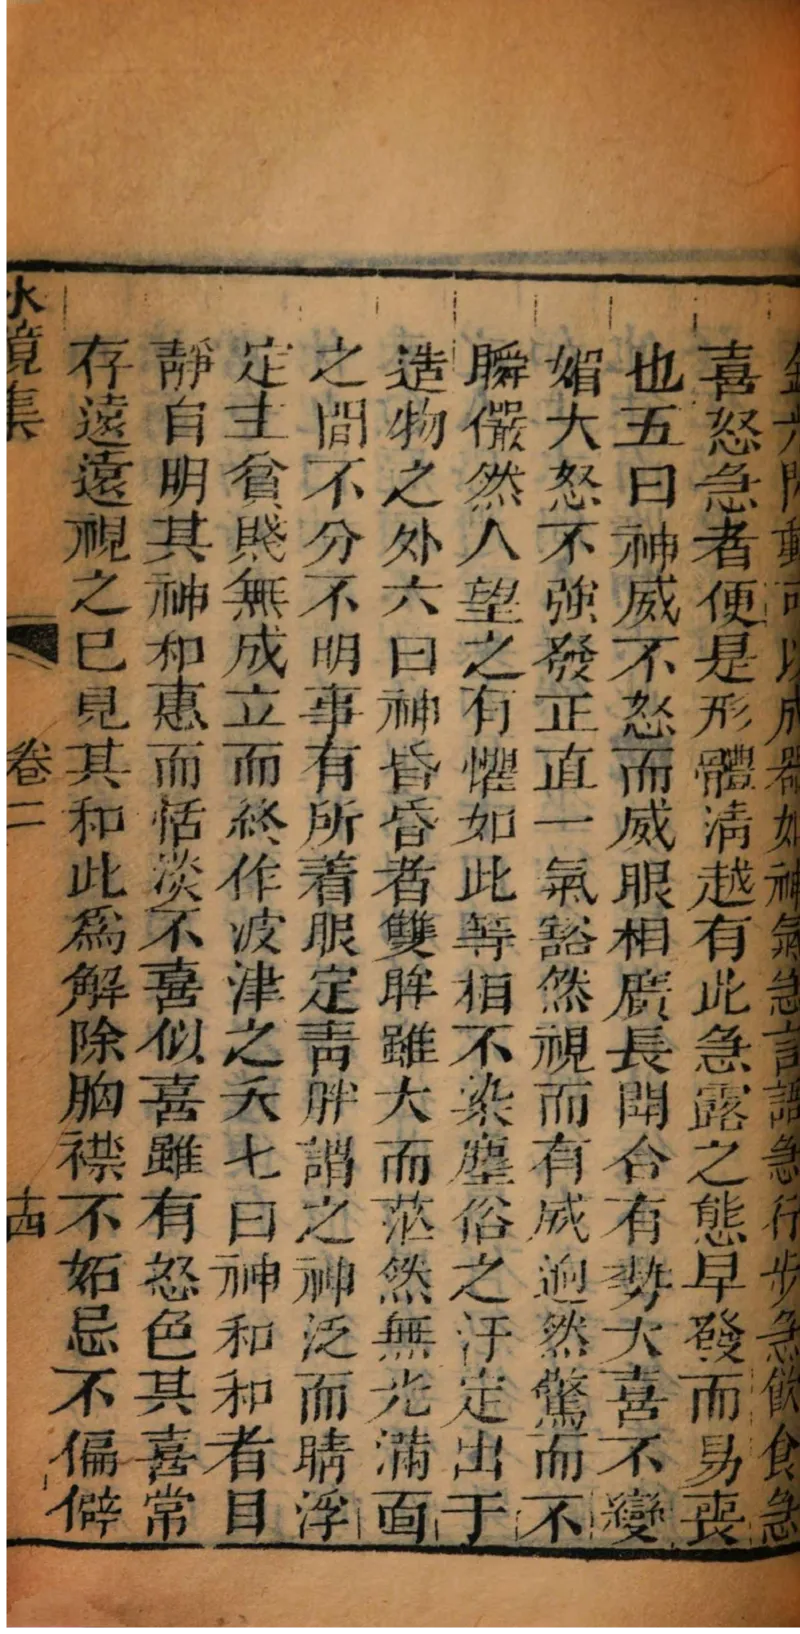 動可以成器如神氣急言語急行步急飲食急
喜怒急者便是形體清越有此急露之態早發而易喪
也五曰神威不怒而威眼相廣長開合有勢大喜不變
媚大怒不強發正直一氣豁然視而有威迥然驚而不
瞬儼然人望之有懼如此等相不染塵俗之汙定出于
造物之外六曰神昏昏者雙眸雖大而茫然無光滿面
之間不分不明事有所着眼定青胖謂之神泛而睛浮
定主貧賤無成立而終作波津之夭七曰神和和者目
靜自明其神和惠而恬淡不喜似喜雖有怒色其喜常
存遠遠視之已見其和此為解除胸襟不妬忌不偏僻
水鏡集
卷二
十四